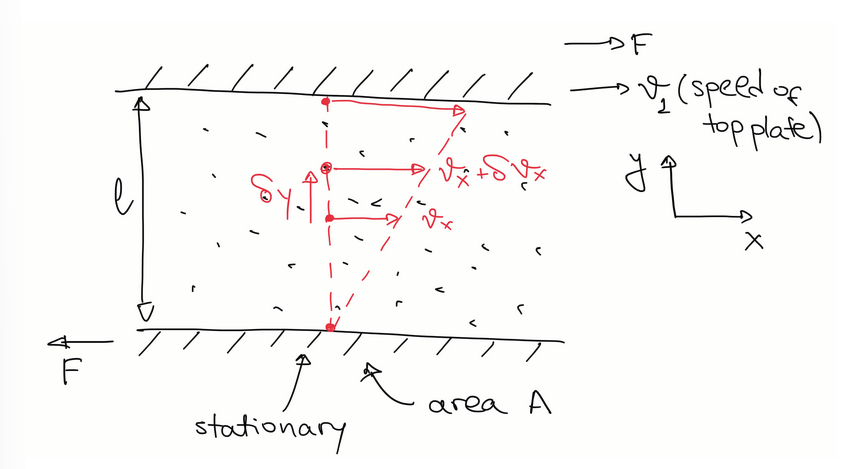 F
v₁ (speed of
top plate)
y
x
l
δy
vₓ + δvₓ
vₓ
F
stationary
area A